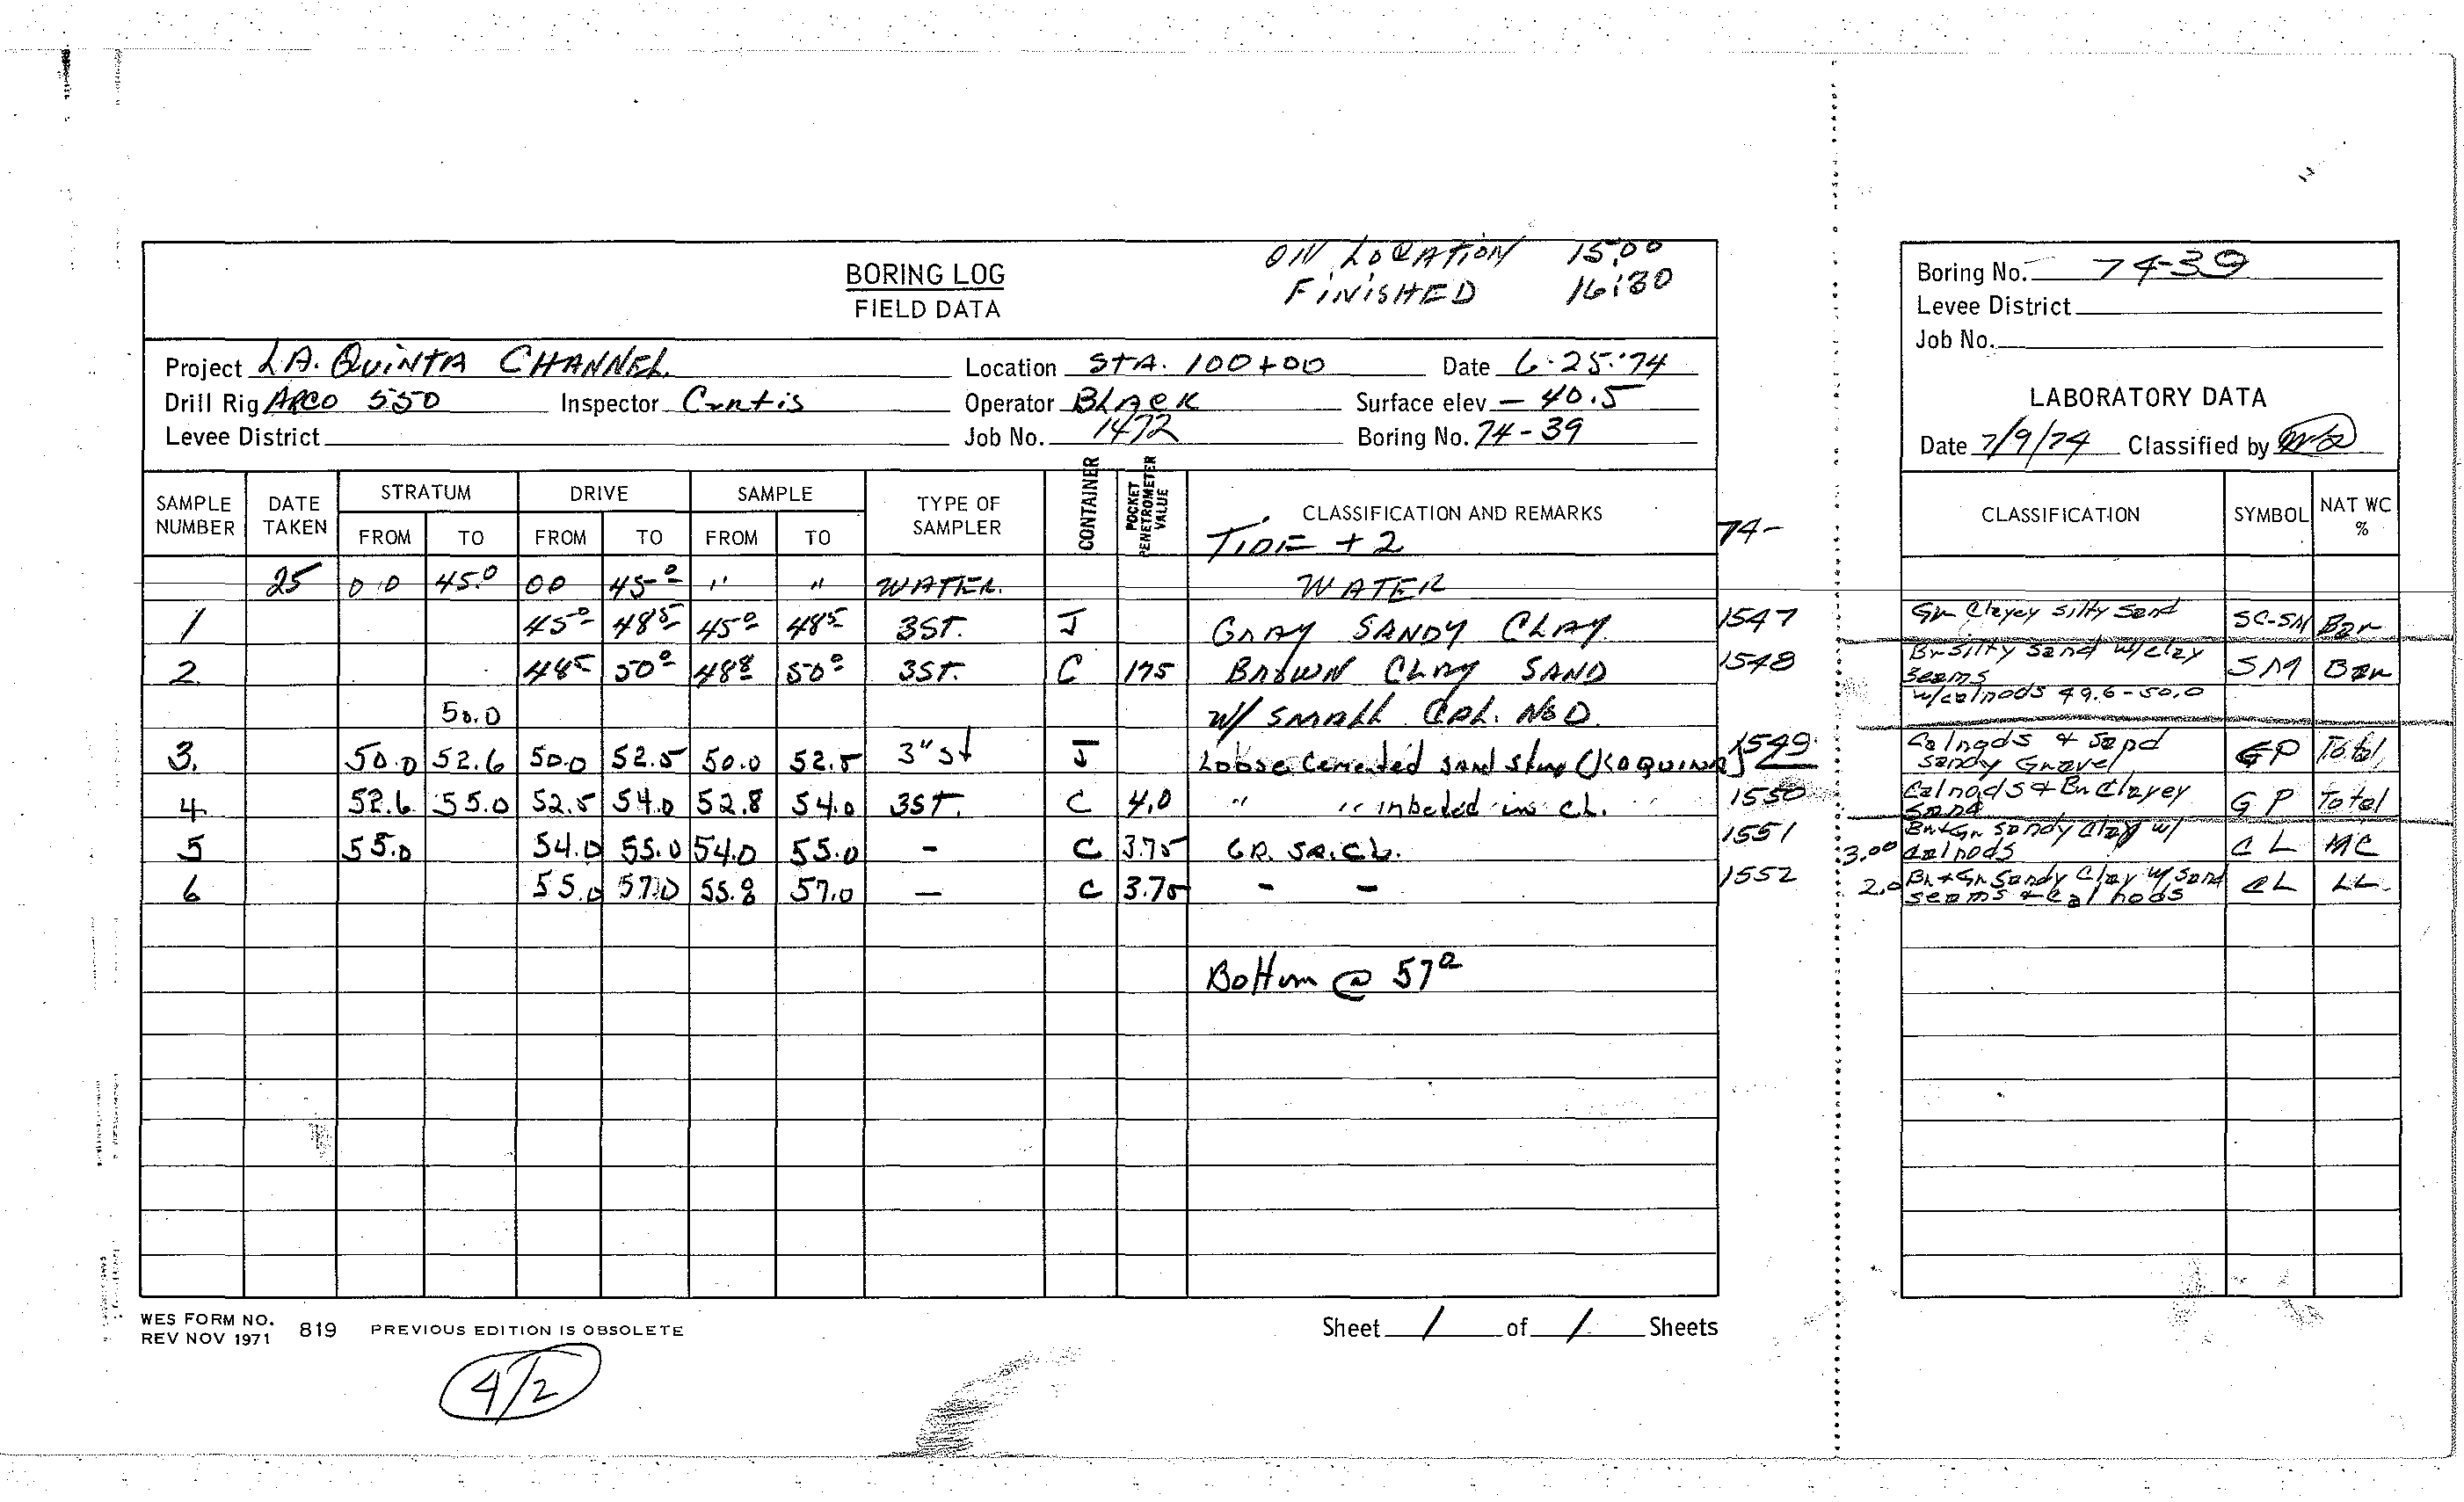 ON LOCATION 15:00
BORING LOG
FINISHED 16:30
FIELD DATA
Project LA. QUINTA CHANNEL Location STA. 100+00 Date 6-25-'74
Drill Rig ARCO 550 Inspector Curtis Operator BLACK Surface elev. - 40.5
Levee District Job No. 1472 Boring No. 74-39
SAMPLE NUMBER DATE TAKEN STRATUM FROM TO DRIVE FROM TO SAMPLE FROM TO TYPE OF SAMPLER CONTAINER POCKET PENETROMETER VALUE CLASSIFICATION AND REMARKS
TIDE + 2 74-
25 0.0 45.0 00 45.0 " " WATER. WATER
1 45.0 48.5 45.0 48.5 3ST. J GRAY SANDY CLAY. 1547
2. 48.5 50.0 48.8 50.0 3ST. C 175 BROWN CLAY SAND 1548
50.0 w/ SMALL CAL. NOD.
3. 50.0 52.6 50.0 52.5 50.0 52.5 3"St J Loose Cemented sand stone (KOQUINA) 1549
4. 52.6 55.0 52.5 54.0 52.8 54.0 3ST. C 4.0 " " inbeded in CL. 1550
5 55.0 54.0 55.0 54.0 55.0 - C 3.75 GR. SA. CL. 1551
6 55.0 57.0 55.8 57.0 - C 3.75 - - 1552
Bottom @ 57.0
WES FORM NO. 819 PREVIOUS EDITION IS OBSOLETE
REV NOV 1971
Sheet 1 of 1 Sheets
4/2
Boring No. 74-39
Levee District
Job No.
LABORATORY DATA
Date 7/9/74 Classified by
CLASSIFICATION SYMBOL NAT WC %
Gr Clayey Silty Sand SC-SM Bar
Br Silty Sand w/clay SM Bar
seams
w/calnods 49.6-50.0
Calnods & Sand GP Total
Sandy Gravel
Calnods & Br Clayey GP Total
Sand
Br+Gr Sandy Clay w/ CL MC
3.00 calnods
2.0 Br+Gr Sandy Clay w/ Sand CL LL
seams & Cal nods